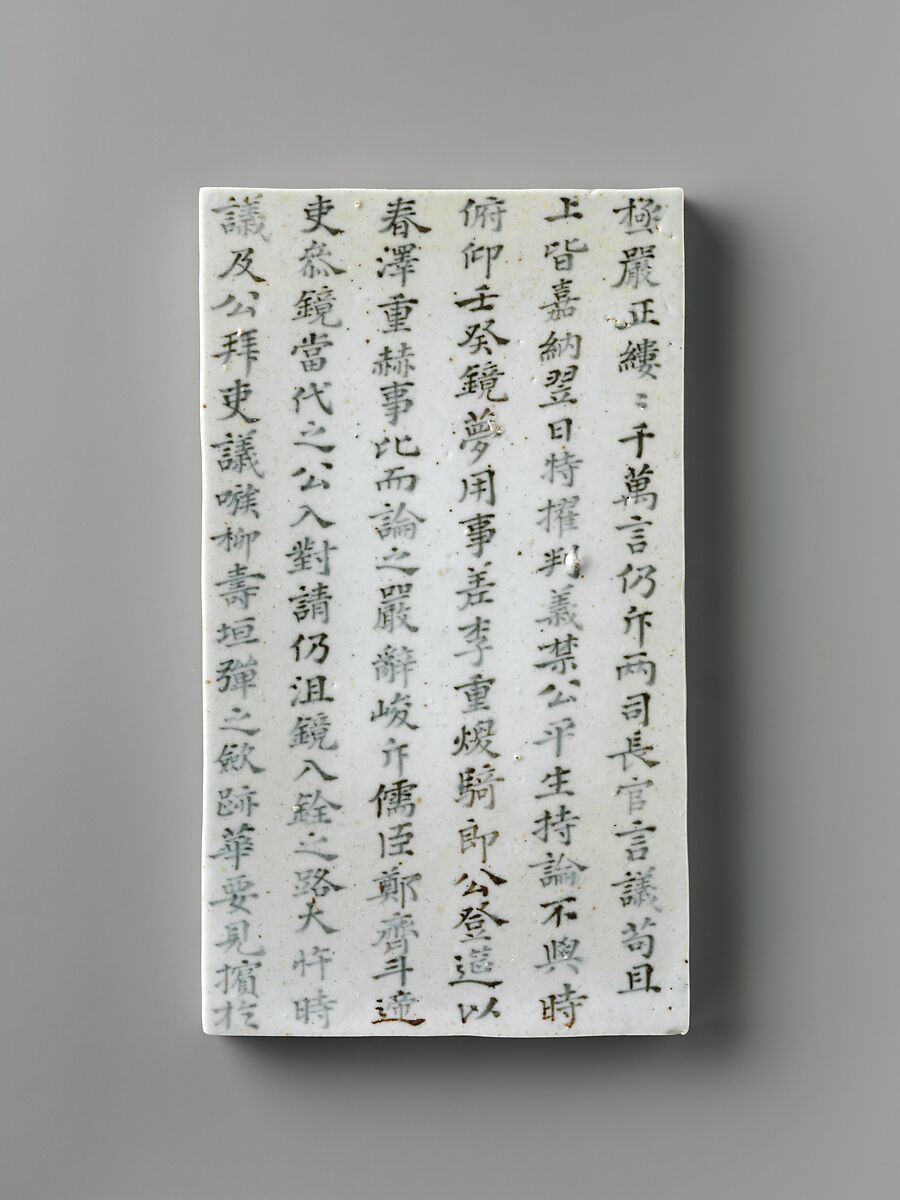 極嚴正縷〻千萬言仍斥兩司長官言議苟且
上皆嘉納翌日特擢判義禁公平生持論不與時
俯仰壬癸鏡夢用事差李重煥騎郎公登筵以
春澤重赫事比而論之嚴辭峻斥儒臣鄭齊斗達
吏叅鏡當代之公入對請仍沮鏡入銓之路大忤時
議及公拜吏議喉柳壽垣彈之斂跡華要見擯於